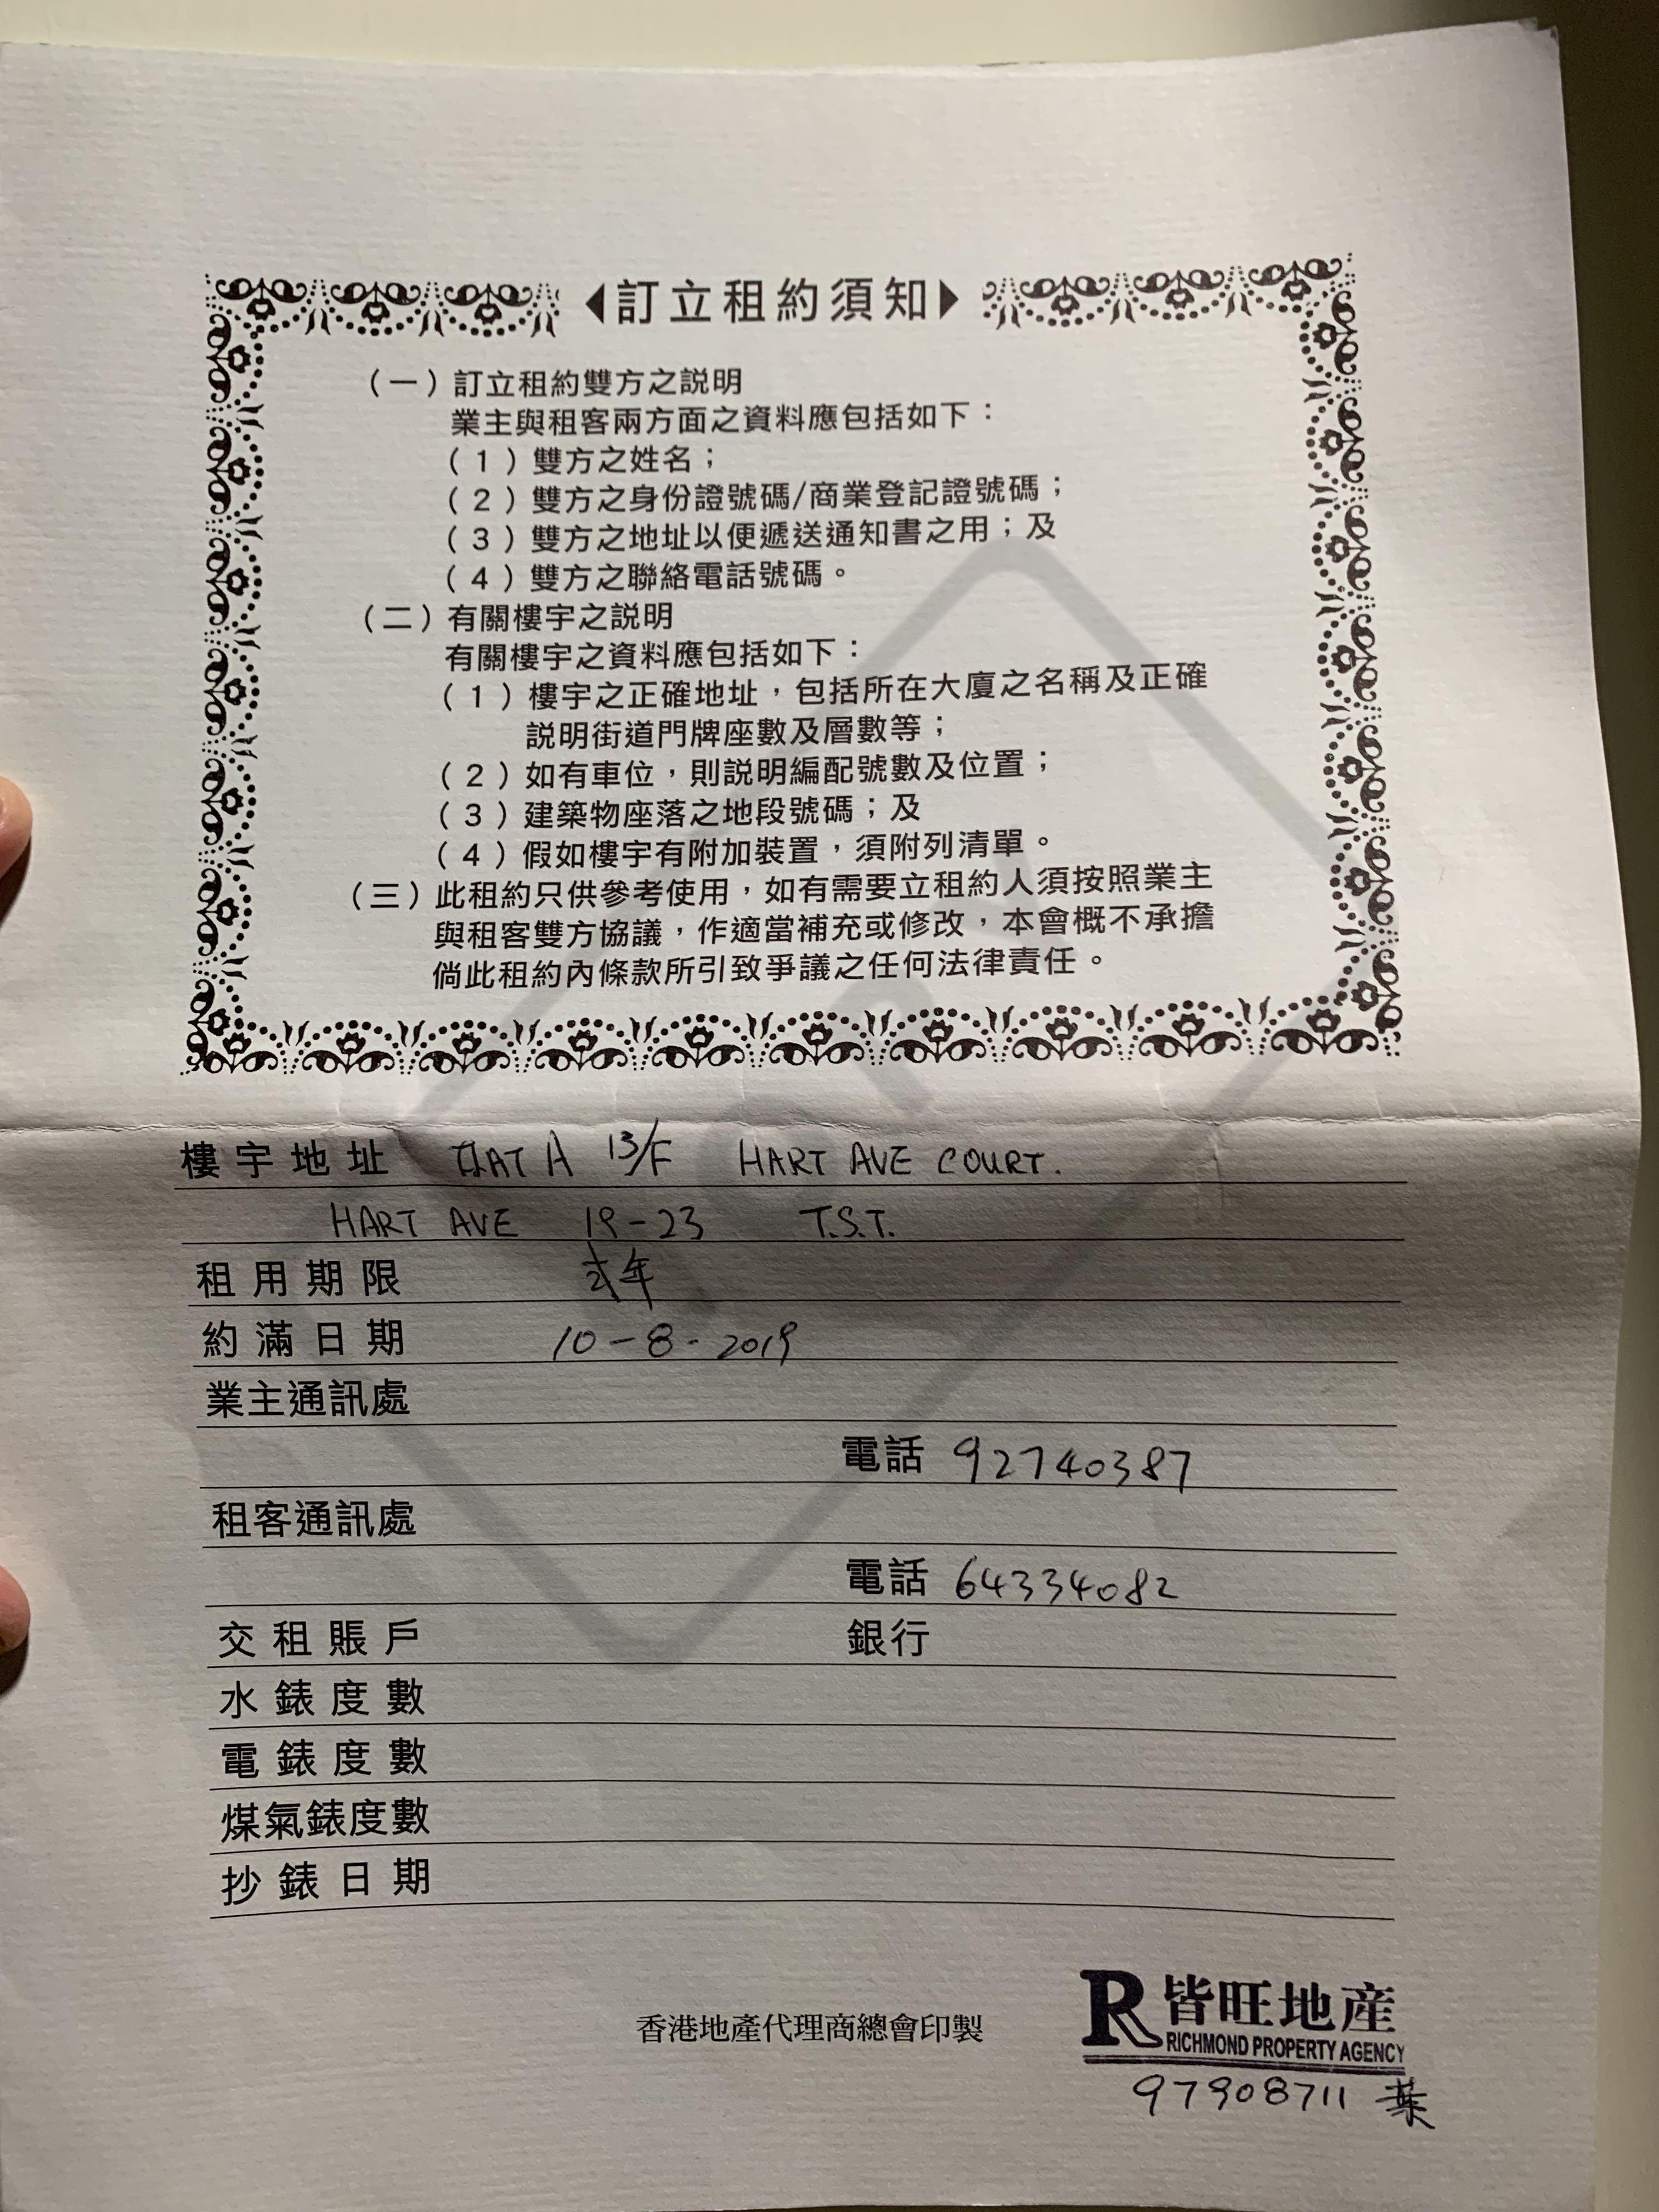 ◀訂立租約須知▶
（一）訂立租約雙方之説明
業主與租客兩方面之資料應包括如下：
（1）雙方之姓名；
（2）雙方之身份證號碼/商業登記證號碼；
（3）雙方之地址以便遞送通知書之用；及
（4）雙方之聯絡電話號碼。
（二）有關樓宇之説明
有關樓宇之資料應包括如下：
（1）樓宇之正確地址，包括所在大廈之名稱及正確
説明街道門牌座數及層數等；
（2）如有車位，則説明編配號數及位置；
（3）建築物座落之地段號碼；及
（4）假如樓宇有附加裝置，須附列清單。
（三）此租約只供參考使用，如有需要立租約人須按照業主
與租客雙方協議，作適當補充或修改，本會概不承擔
倘此租約內條款所引致爭議之任何法律責任。
樓宇地址 FLAT A 13/F HART AVE COURT.
HART AVE 19-23 T.S.T.
租用期限 弍年
約滿日期 10-8-2019
業主通訊處
電話 92740387
租客通訊處
電話 64334082
交租賬戶 銀行
水錶度數
電錶度數
煤氣錶度數
抄錶日期
香港地產代理商總會印製
R 皆旺地産
RICHMOND PROPERTY AGENCY
97908711 葉